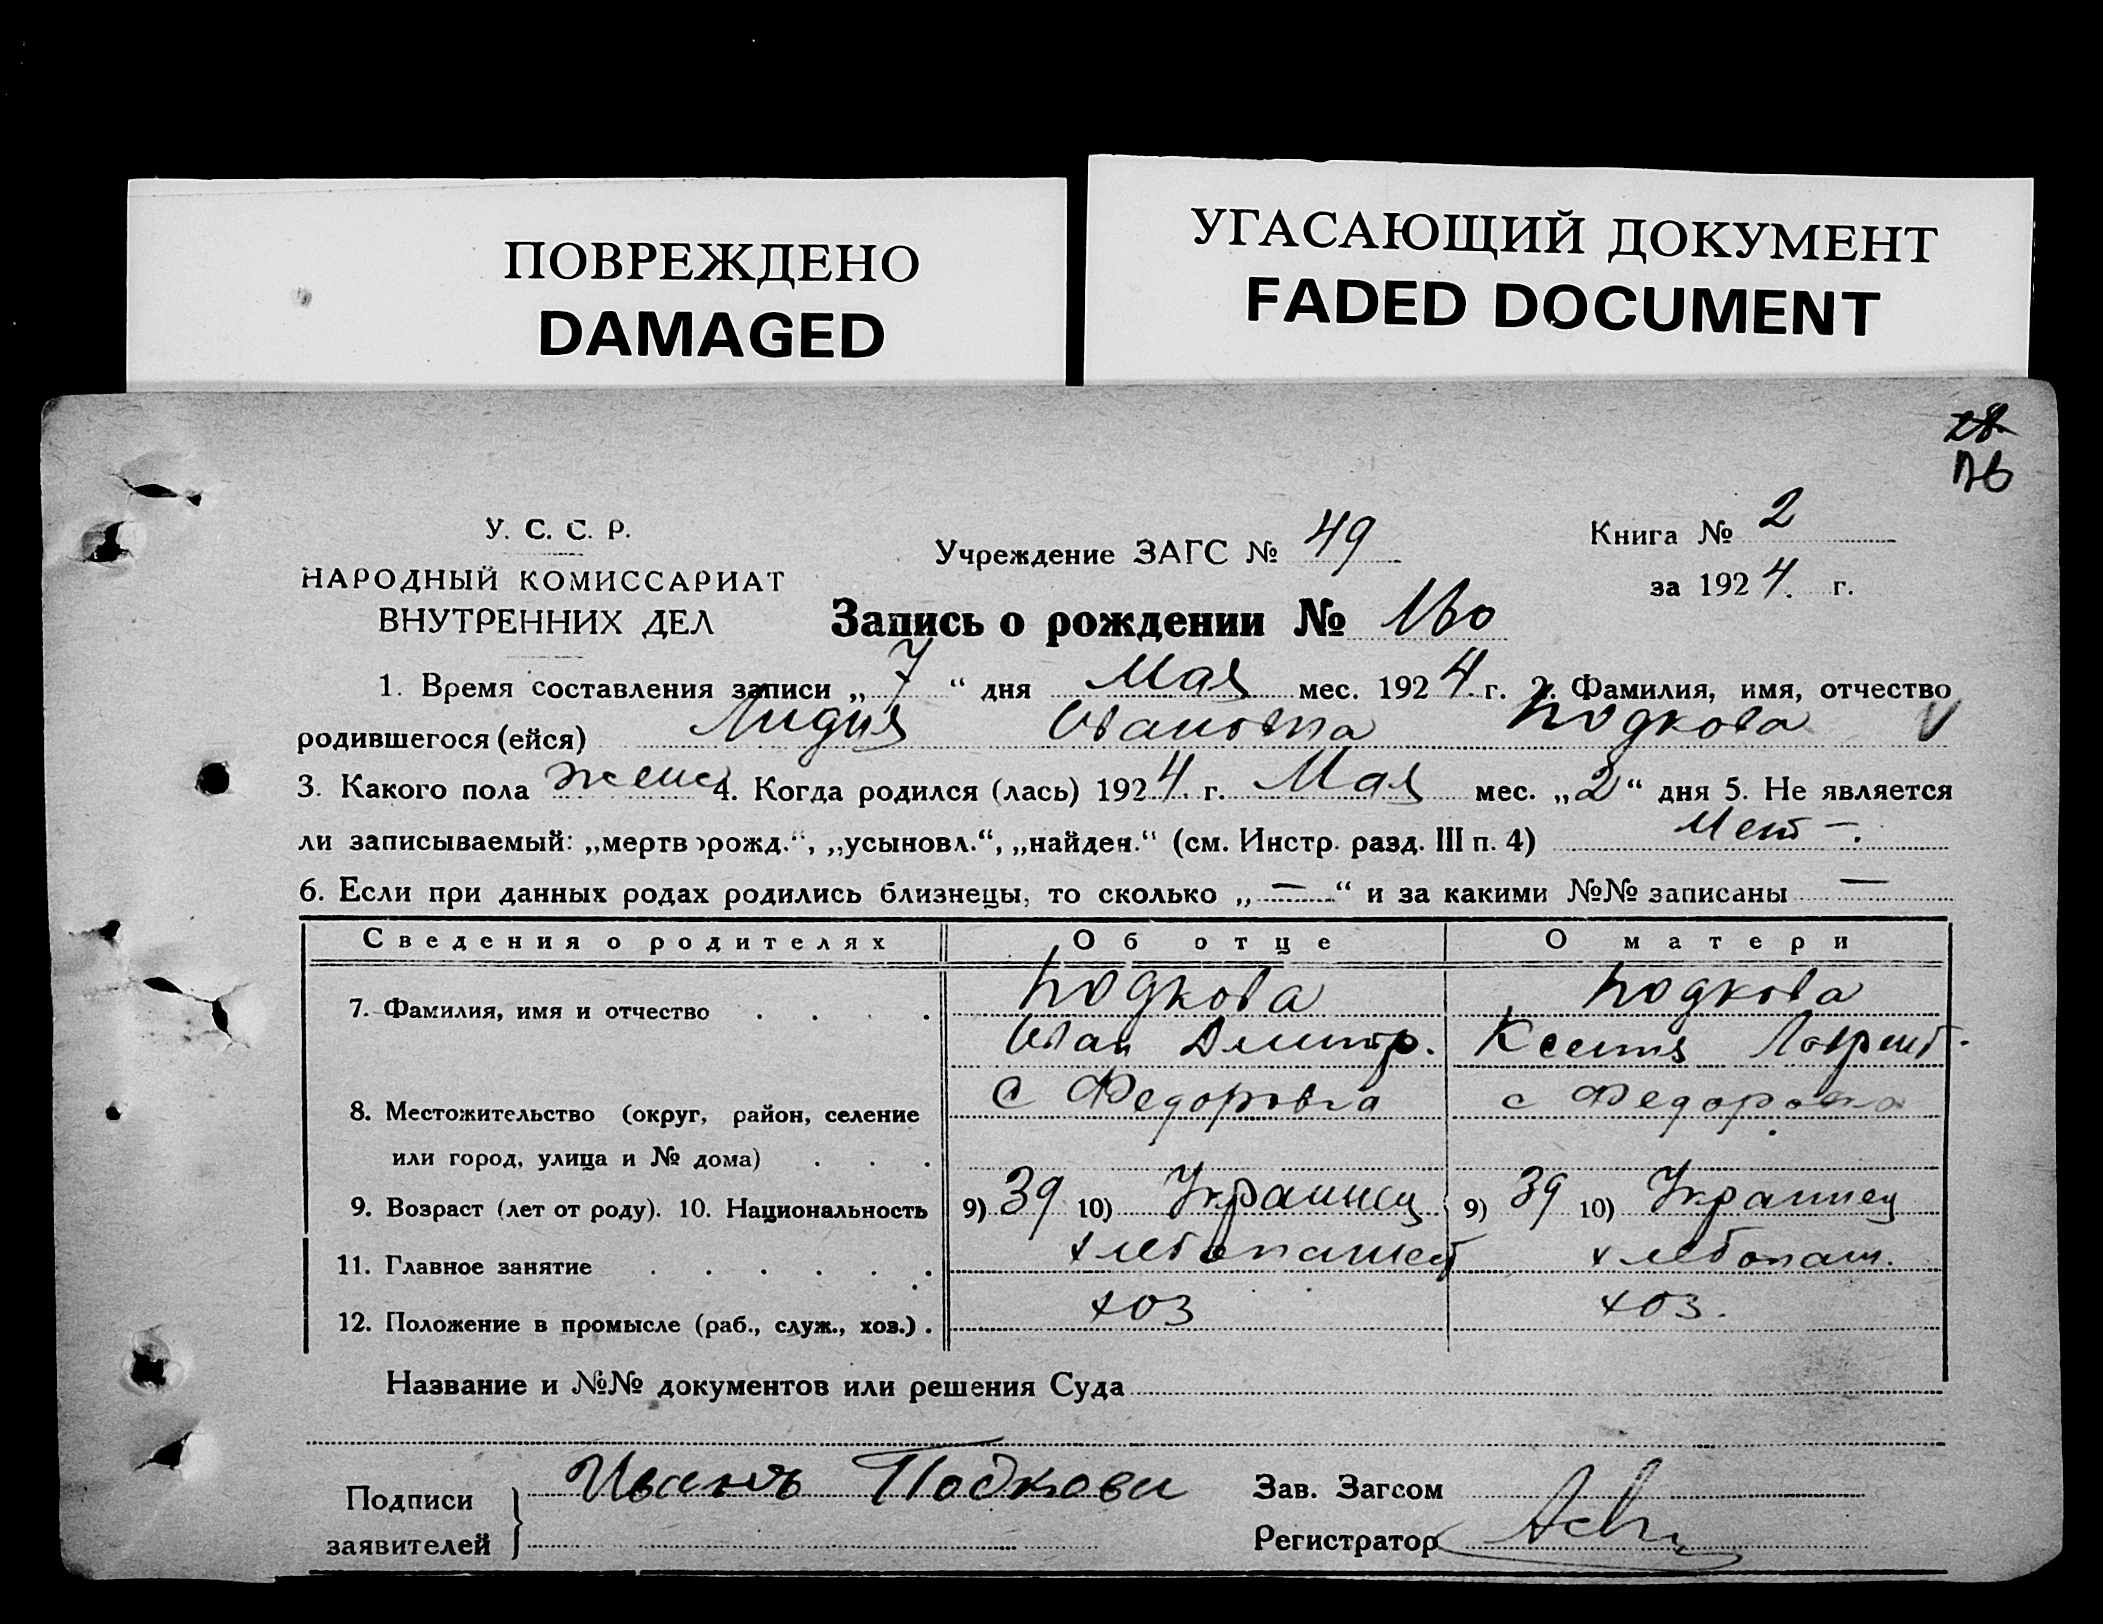 ПОВРЕЖДЕНО
DAMAGED
УГАСАЮЩИЙ ДОКУМЕНТ
FADED DOCUMENT
28
У. С. С. Р.
НАРОДНЫЙ КОМИССАРИАТ
ВНУТРЕННИХ ДЕЛ
Учреждение ЗАГС № 49
Книга № 2
за 1924 г.
Запись о рождении № 160
1. Время составления записи „7“ дня Мая мес. 1924 г. 2. Фамилия, имя, отчество
родившегося (ейся) Лидия Ивановна Подкова
3. Какого пола женс 4. Когда родился (лась) 1924 г. Мая мес. „2“ дня 5. Не является
ли записываемый: „мертворожд.“, „усыновл.“, „найден.“ (см. Инстр. разд. III п. 4) Нет —.
6. Если при данных родах родились близнецы, то сколько „—“ и за какими №№ записаны —
Сведения о родителях Об отце О матери
7. Фамилия, имя и отчество . . . . Подкова Подкова
Иван Дмитр. Ксения Лаврент.
8. Местожительство (округ, район, селение с Федоровка с Федоровка
или город, улица и № дома) . . .
9. Возраст (лет от роду). 10. Национальность 9) 39 10) Украинец 9) 39 10) Украинец
11. Главное занятие . . . . . . хлебопашец хлебопаш.
12. Положение в промысле (раб., служ., хоз.) . хоз хоз.
Название и №№ документов или решения Суда
Подписи
заявителей
Иванъ Подкова
Зав. Загсом
Регистратор